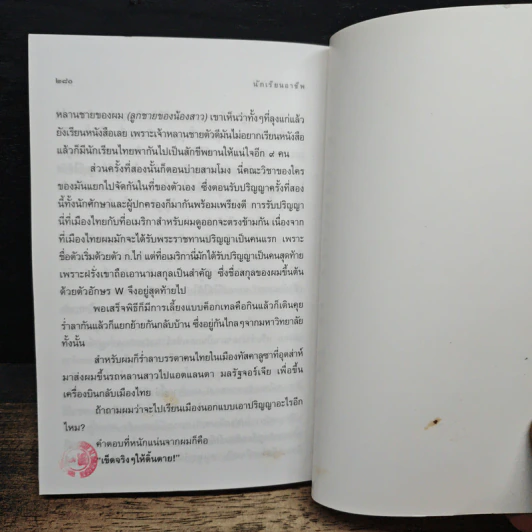 ๒๘๐
นักเรียนอาชีพ
หลานชายของผม (ลูกชายของน้องสาว) เขาเห็นว่าทั้งๆที่ลุงแก่แล้ว
ยังเรียนหนังสือเลย เพราะเจ้าหลานชายตัวดีมันไม่อยากเรียนหนังสือ
แล้วก็มีนักเรียนไทยพากันไปเป็นสักขีพยานให้แน่ใจอีก ๙ คน
ส่วนครั้งที่สองนั้นก็ตอนบ่ายสามโมง นี่คณะวิชาของใคร
ของมันแยกไปจัดกันในที่ของตัวเอง ซึ่งตอนรับปริญญาครั้งที่สอง
นี้ทั้งนักศึกษาและผู้ปกครองก็มากันพร้อมเพรียงดี การรับปริญญา
นี่ที่เมืองไทยกับที่อเมริกาสำหรับผมดูออกจะตรงข้ามกัน เนื่องจาก
ที่เมืองไทยผมมักจะได้รับพระราชทานปริญญาเป็นคนแรก เพราะ
ชื่อตัวเริ่มด้วยตัว ก.ไก่ แต่ที่อเมริกานี่มักได้รับปริญญาเป็นคนสุดท้าย
เพราะฝรั่งเขาถือเอานามสกุลเป็นสำคัญ ซึ่งชื่อสกุลของผมขึ้นต้น
ด้วยตัวอักษร W จึงอยู่สุดท้ายไป
พอเสร็จพิธีก็มีการเลี้ยงแบบค็อกเทลคือกินแล้วก็เดินคุย
ร่ำลากันแล้วก็แยกย้ายกันกลับบ้าน ซึ่งอยู่กันไกลๆจากมหาวิทยาลัย
ทั้งนั้น
สำหรับผมก็ร่ำลาบรรดาคนไทยในเมืองทัสคาลูซาที่อุตส่าห์
มาส่งผมขึ้นรถหลานสาวไปแอตแลนตา มลรัฐจอร์เจีย เพื่อขึ้น
เครื่องบินกลับเมืองไทย
ถ้าถามผมว่าจะไปเรียนเมืองนอกแบบเอาปริญญาอะไรอีก
ไหม?
คำตอบที่หนักแน่นจากผมก็คือ
"เข็ดจริงๆให้ดิ้นตาย!"